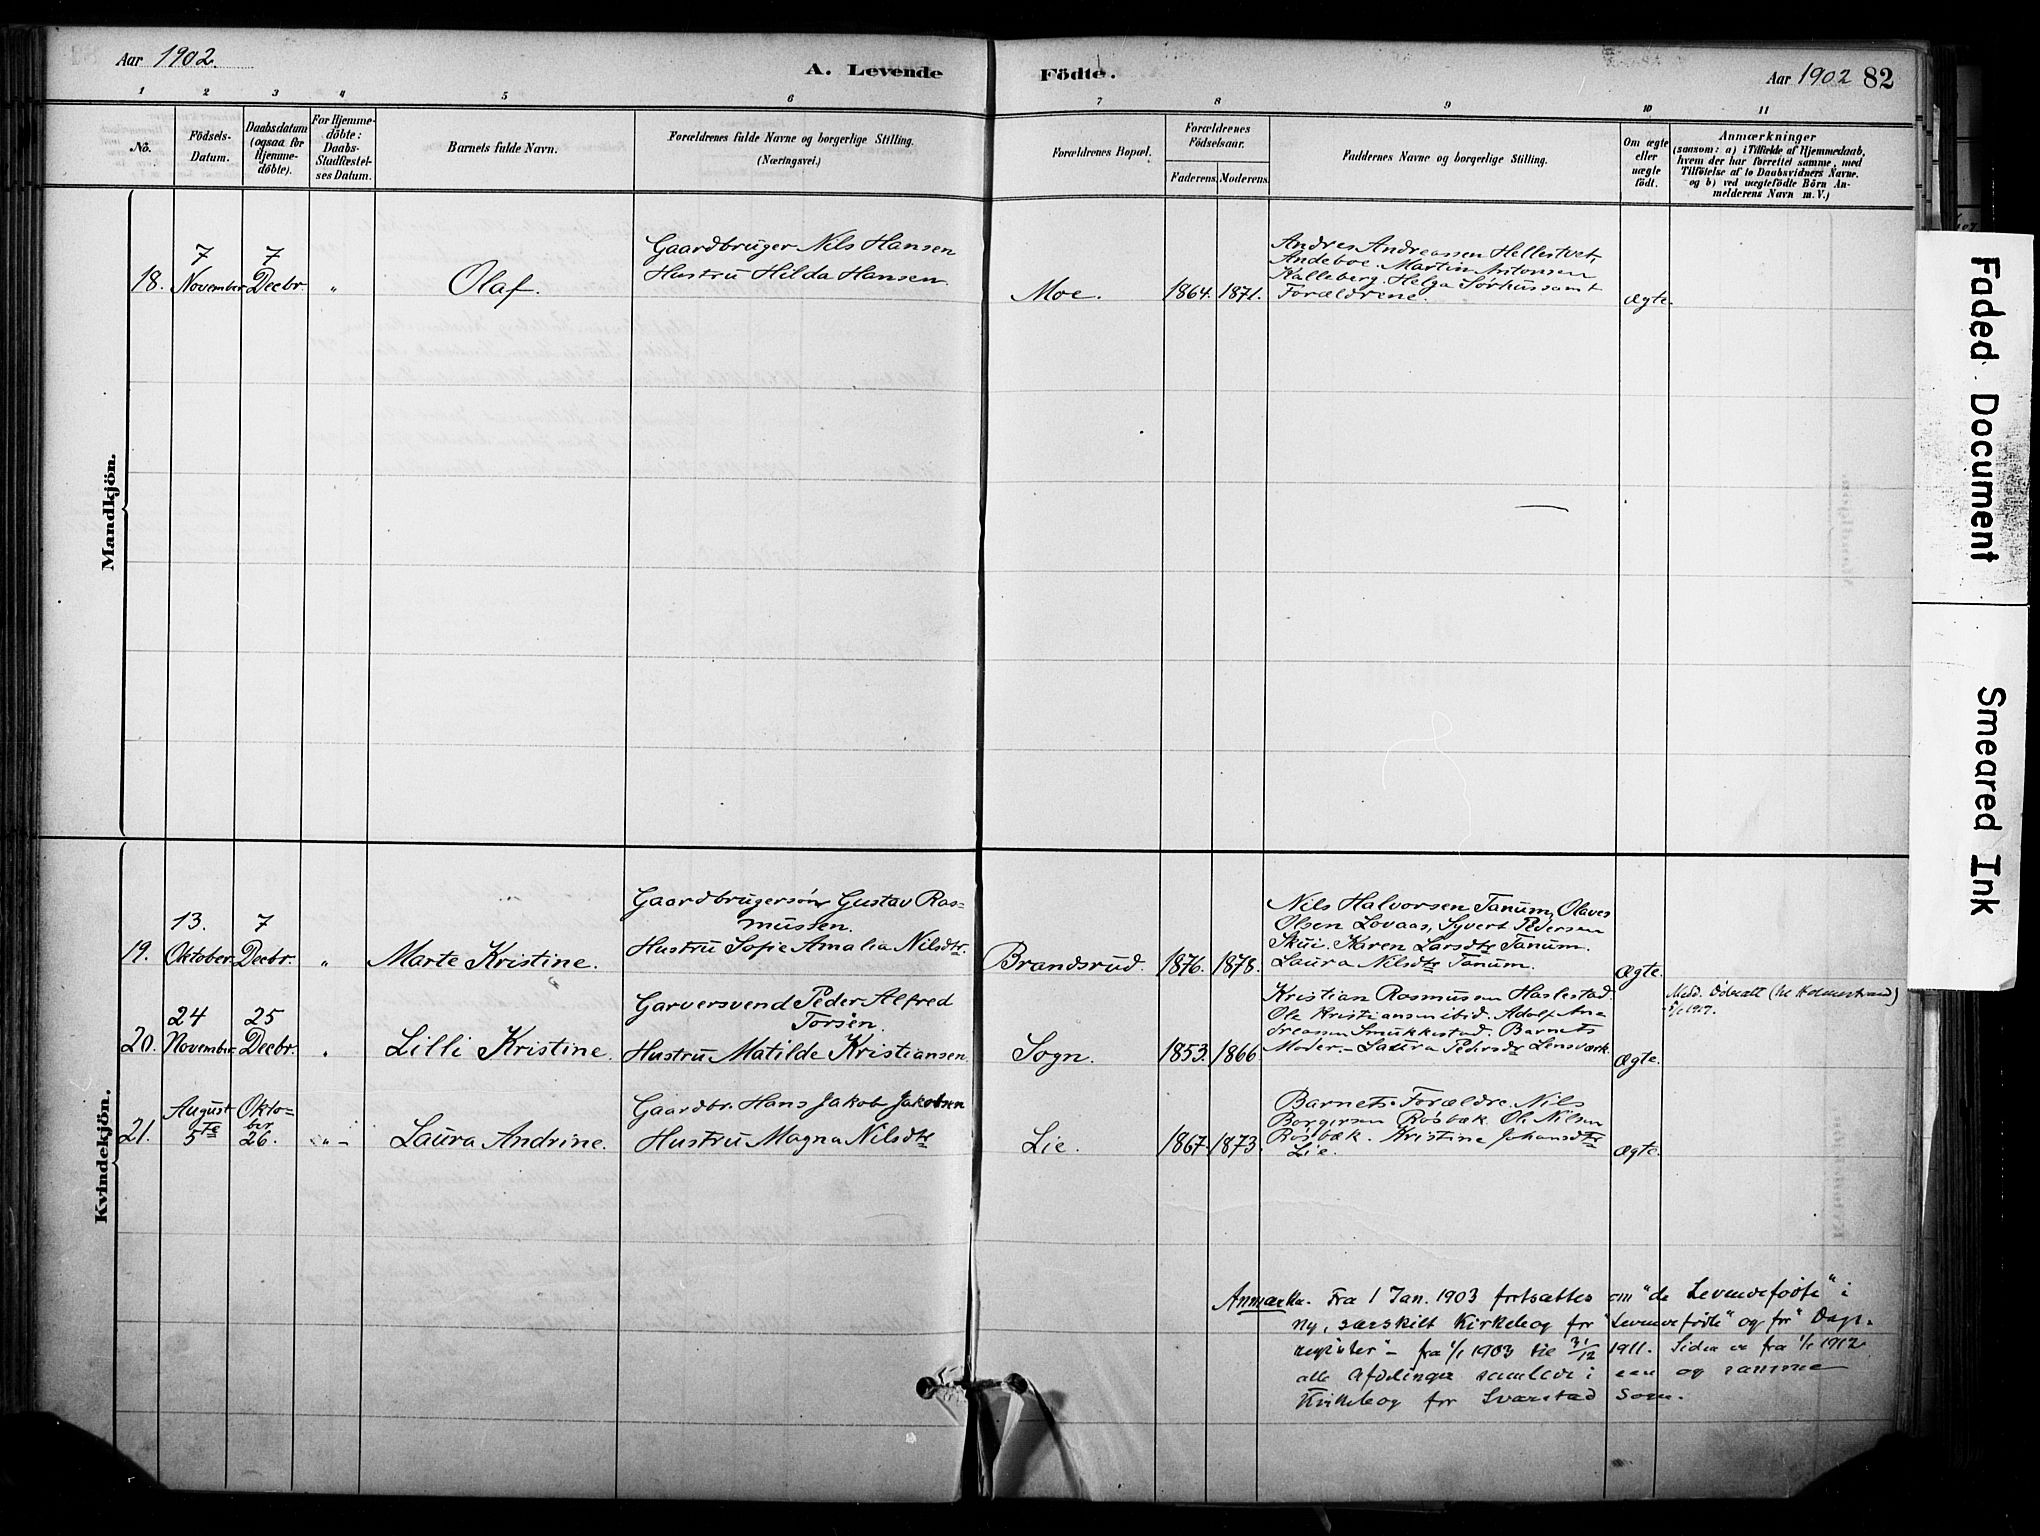 Aar 1902.
A. Levende Fødte.
Aar 1902 82
1 2 3 4 5 6 7 8 9 10 11
No.
Födsels-
Datum.
Daabsdatum
(ogsaa for
Hjemme-
döbte).
For Hjemme-
döbte:
Daabs-
Stadfæstel-
ses Datum.
Barnets fulde Navn.
Forældrenes fulde Navne og borgerlige Stilling.
(Næringsvei.)
Forældrenes Bopæl.
Forældrenes
Födselsaar.
Faderens. Moderens.
Faddernes Navne og borgerlige Stilling.
Om ægte
eller
uægte
födt.
Anmærkninger
(saasom: a) i Tilfælde af Hjemmedaab,
hvem der har forrettet samme, med
Tilföielse af to Daabsvidners Navne.
og b) ved uægtefödte Börn An-
melderens Navn m.V.)
Mandkjön.
18.
7
November
7
Decbr
"
Olaf.
Gaardbruger Nils Hansen
Hustru Hilda Hansen
Moe.
1864. 1871.
Andres Andreassen Hellestvet,
Andeboe. Martin Antonsen
Kalleberg. Helga Sørhus samt
Forældrene.
Ægte.
Kvindekjön.
19.
13.
Oktober
7
Decbr.
"
Marte Kristine.
Gaardbrugersön Gustav Ras=
mussen.
Hustru Sofie Amalia Nilsdtr.
Brandsrud.
1876. 1878.
Nils Halvorsen Tanum, Olaves
Olsen Lovaas, Syvert Pedersen
Skui. Karen Larsdtr Tanum.
Laura Nilsdtr Tanum.
Ægte.
20.
24
November
25
Decbr.
"
Lilli Kristine.
Garversvend Peder Alfred
Torsen.
Hustru Matilde Kristiansen
Sogn.
1853. 1866
Kristian Rasmussen Haslestad.
Ole Kristiansen ibid. Adolf An-
dreassen Smukkestad. Barnets
Moder. - Laura Pedersdtr Lensværk.
Ægte.
1917.
21.
August
5te
Okto=
ber
26.
"
Laura Andrine.
Gaardbr. Hans Jakob Jakobsen
Hustru Magna Nilsdtr
Lie.
1867. 1873.
Barnets Forældre. Nils
Borgersen Røsbæk. Ole Nilsen
Røsbæk. Kristine Johansdtr
Lie.
Ægte.
Anmærkn. Fra 1 Jan. 1903 fortsættes om "de Levendefødte" i
ny, særskilt Kirkebog for "Levendefødte" og for "Dags-
register" - fra 1/1 1903 til 31/12 1911. Siden er fra 1/1 1912
alle Afdelinger samlede i een og samme
Kirkebog for Svarstad Sogn.
Faded Document
Smeared Ink